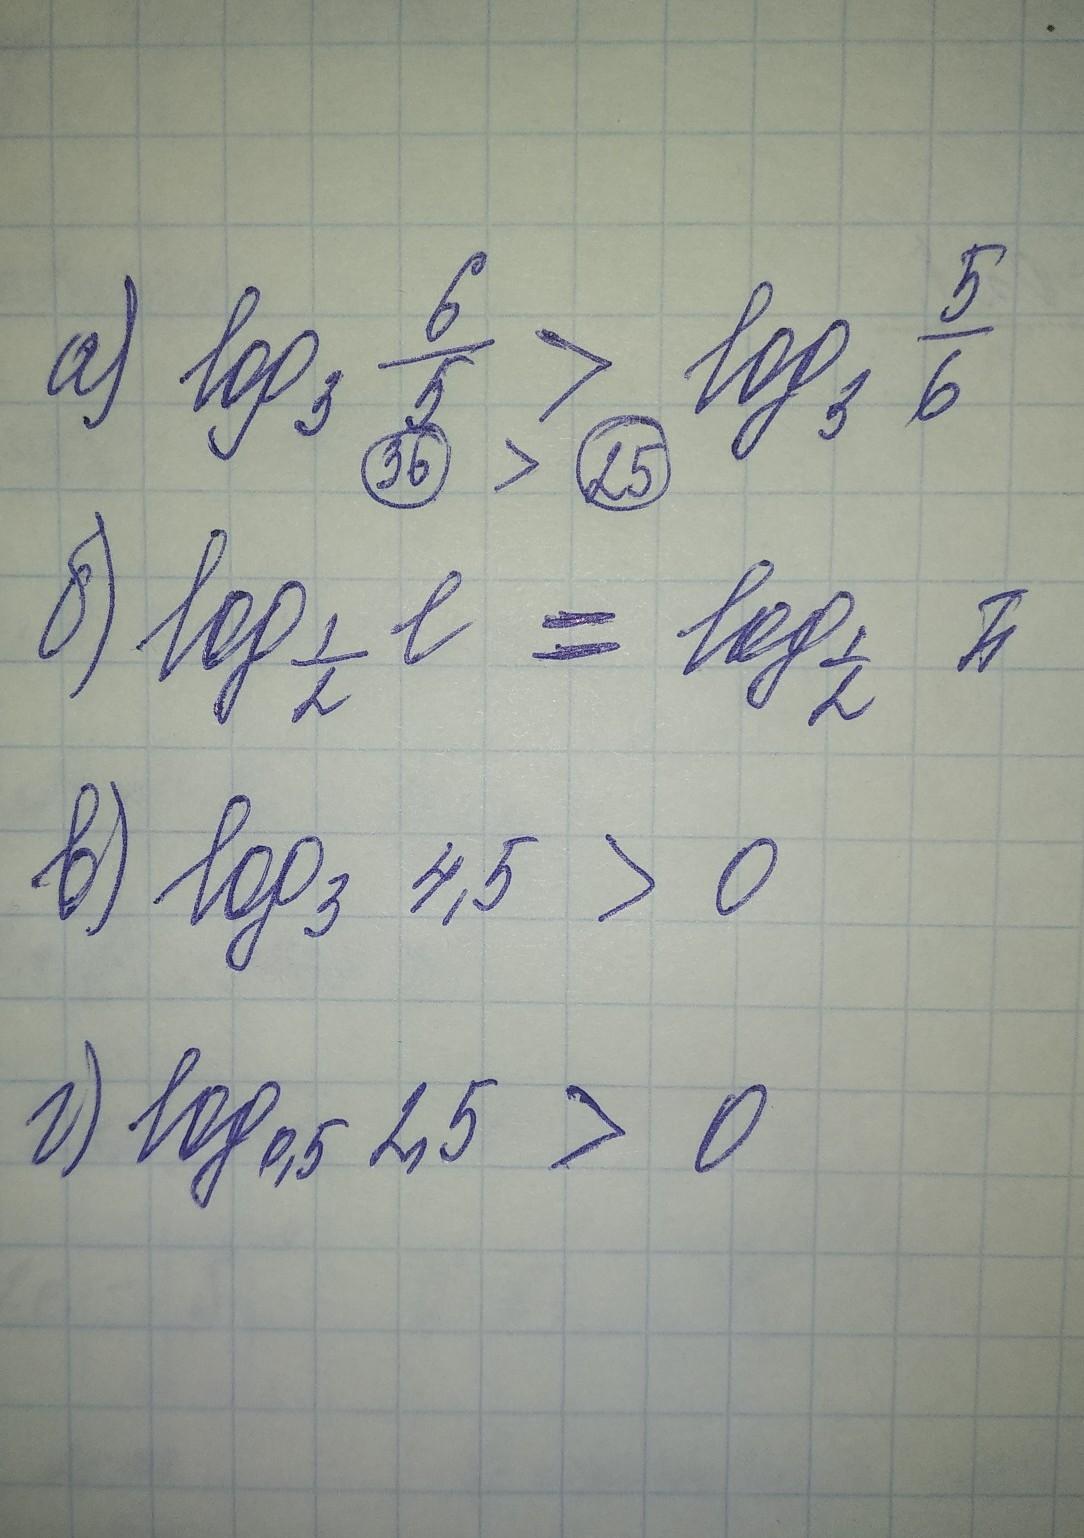 а) log₃ 6/5 > log₃ 5/6
36 > 25
б) log₁/₂ e = log₁/₂ π
в) log₃ 4,5 > 0
г) log₀,₅ 2,5 > 0